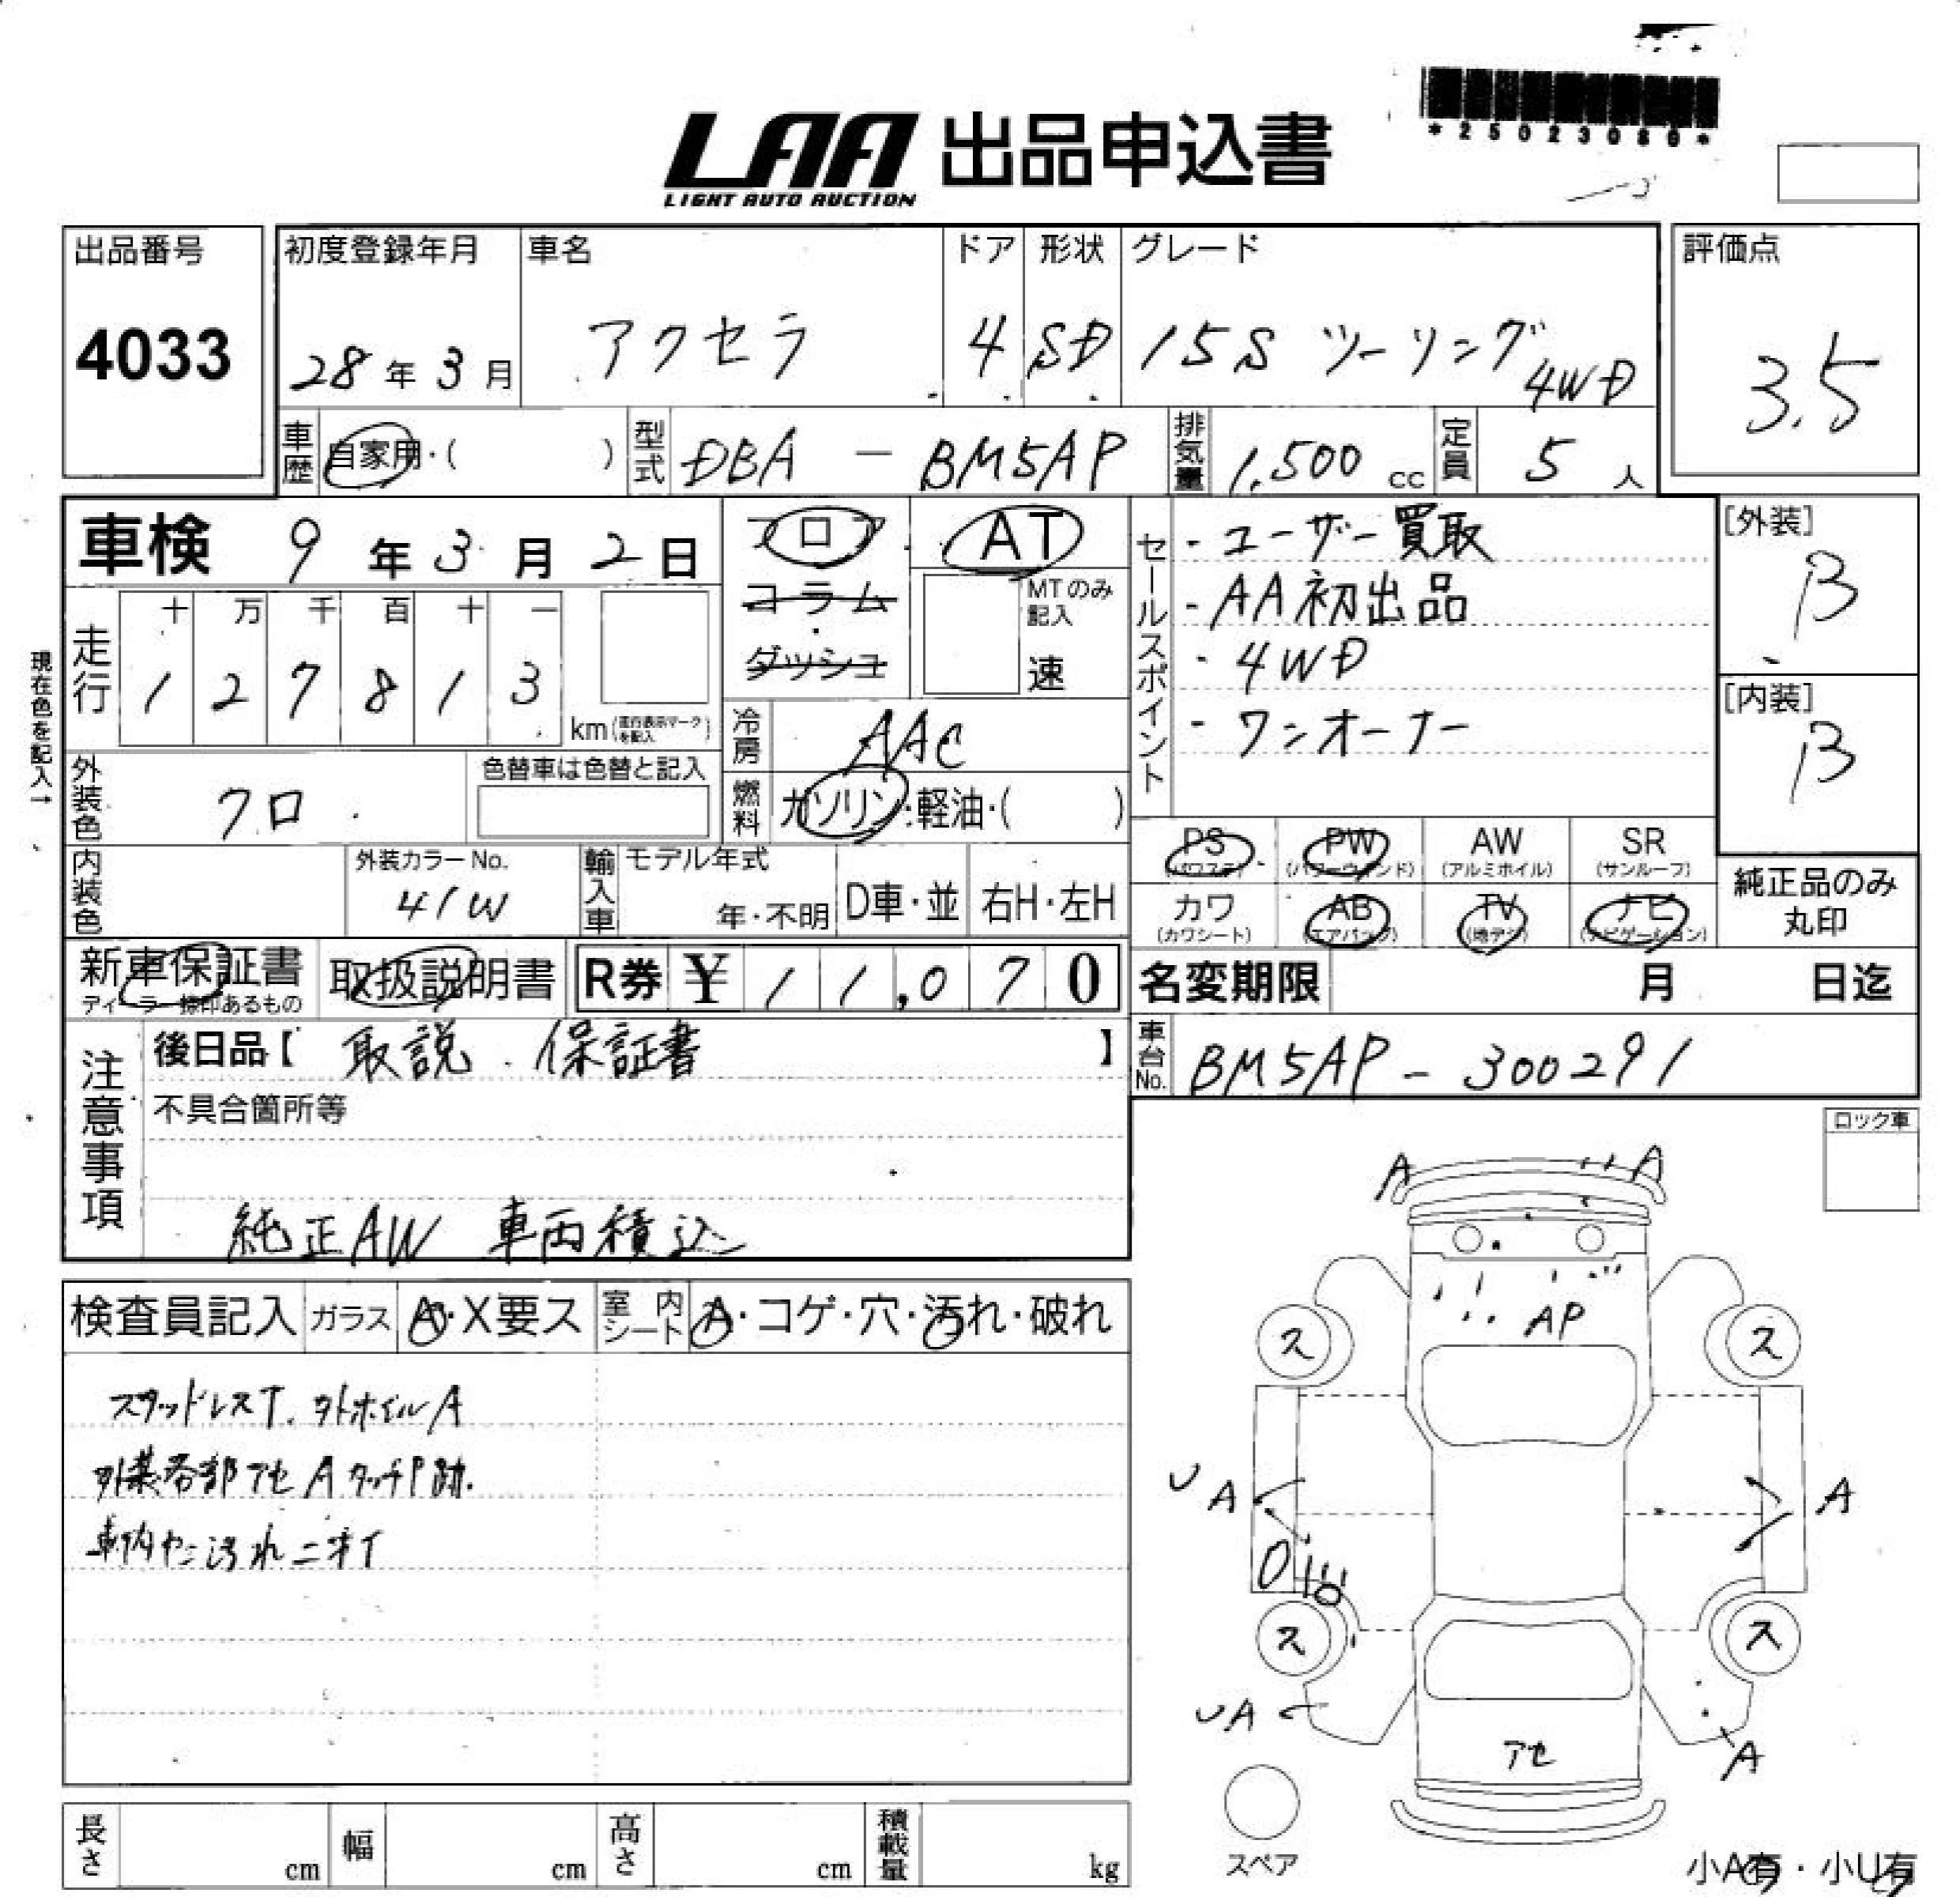 LAA 出品申込書
LIGHT AUTO AUCTION
*25023080*
出品番号
4033
初度登録年月
28年3月
車名
アクセラ
ドア
4
形状
SD
グレード
15S ツーリング
4WD
評価点
3.5
車歴
自家用・( )
型式
DBA - BM5AP
排気量
1,500 cc
定員
5人
車検 9年3月2日
フロア
コラム
・
ダッシュ
AT
MTのみ記入
速
セールスポイント
・ユーザー買取
・AA初出品
・4WD
・ワンオーナー
[外装]
B
[内装]
B
現在色を記入→
走行
十 万 千 百 十 一
1 2 7 8 1 3
km(走行表示マークを記入)
冷房
AAC
外装色
クロ
色替車は色替と記入
燃料
ガソリン・軽油・( )
内装色
外装カラーNo.
41W
輸入車
モデル年式
年・不明
D車・並
右H・左H
PS
(パワステ)
PW
(パワーウインド)
AW
(アルミホイル)
SR
(サンルーフ)
カワ
(カワシート)
AB
(エアバック)
TV
(地デジ)
ナビ
(ナビゲーション)
純正品のみ
丸印
新車保証書
ディーラー捺印あるもの
取扱説明書
R券 ¥ 11,070
名変期限 月 日迄
注意事項
後日品【 取説 . 保証書 】
不具合箇所等
純正AW 車両積込
車台No.
BM5AP - 300291
ロック車
検査員記入
ガラス
A・X要ス
室内シート
A・コゲ・穴・汚れ・破れ
スタッドレスT. 外ホイルA
外装各部アセ AタッチP跡.
車内ヤニ汚れニオイ
A A
AP
ス ス
UA A
ス ス
UA
アセ
A
スペア
小A有・小U有
長さ cm
幅 cm
高さ cm
積載量 kg